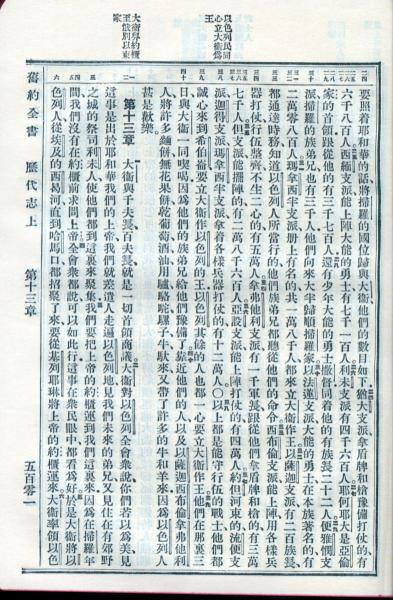 以色列民同心立大衛爲王
要照着耶和華的話將掃羅的國位歸與大衛他們的數目如下猶大支派拿盾牌和槍豫備打仗的有
六千八百人西緬支派能上陣大能的勇士有七千一百人利未支派有四千六百人耶何耶大是亞倫
家的首領跟從他的有三千七百人還有少年大能的勇士撒督同着他的有族長二十二人便雅憫支
派掃羅的族弟兄也有三千人他們向來大半歸順掃羅家以法蓮支派大能的勇士在本族著名的有
二萬零八百人瑪拿西半支派冊上有名的共一萬八千人都來立大衛作王以薩迦支派有二百族長
都通達時務知道以色列人所當行的他們族弟兄都聽從他們的命令西布倫支派能上陣用各樣兵
器打仗行伍整齊不生二心的有五萬人拿弗他利支派有一千軍長跟從他們拿盾牌和槍的有三萬
七千人但支派能擺陣的有二萬八千六百人亞設支派能上陣打仗的有四萬人約但河東的流便支
派迦得支派瑪拿西半支派拿着各樣兵器打仗的有十二萬人〇以上都是能守行伍的戰士他們都
誠心來到希伯崙要立大衛作以色列的王以色列其餘的人也都一心要立大衛作王他們在那裏三
日與大衛一同喫喝因爲他們的族弟兄給他們豫備了靠近他們的人以及以薩迦西布倫拿弗他利
人將許多麵餅無花果餅乾葡萄酒油用驢駱駝騾子牛馱來又帶了許多的牛和羊來因爲以色列人
甚是歡樂
大衛舁約櫃至俄別以東家
第十三章 大衛與千夫長百夫長就是一切首領商議大衛對以色列全會衆說你們若以爲美見
這事是出於耶和華我們的上帝我們就差遣人走遍以色列地見我們未來的弟兄又見住在有郊野
之城的祭司利未人使他們都到這裏來聚集我們要把上帝的約櫃運到我們這裏來因爲在掃羅年
間我們沒有在約櫃前求問上帝會衆都說可以如此行這事在衆民眼中都看爲好於是大衛將以
色列人從埃及的西曷河直到哈馬口都招聚了來要從基列耶琳將上帝的約櫃運來大衛率領以色
舊約全書 歷代志上 第十三章 五百零一